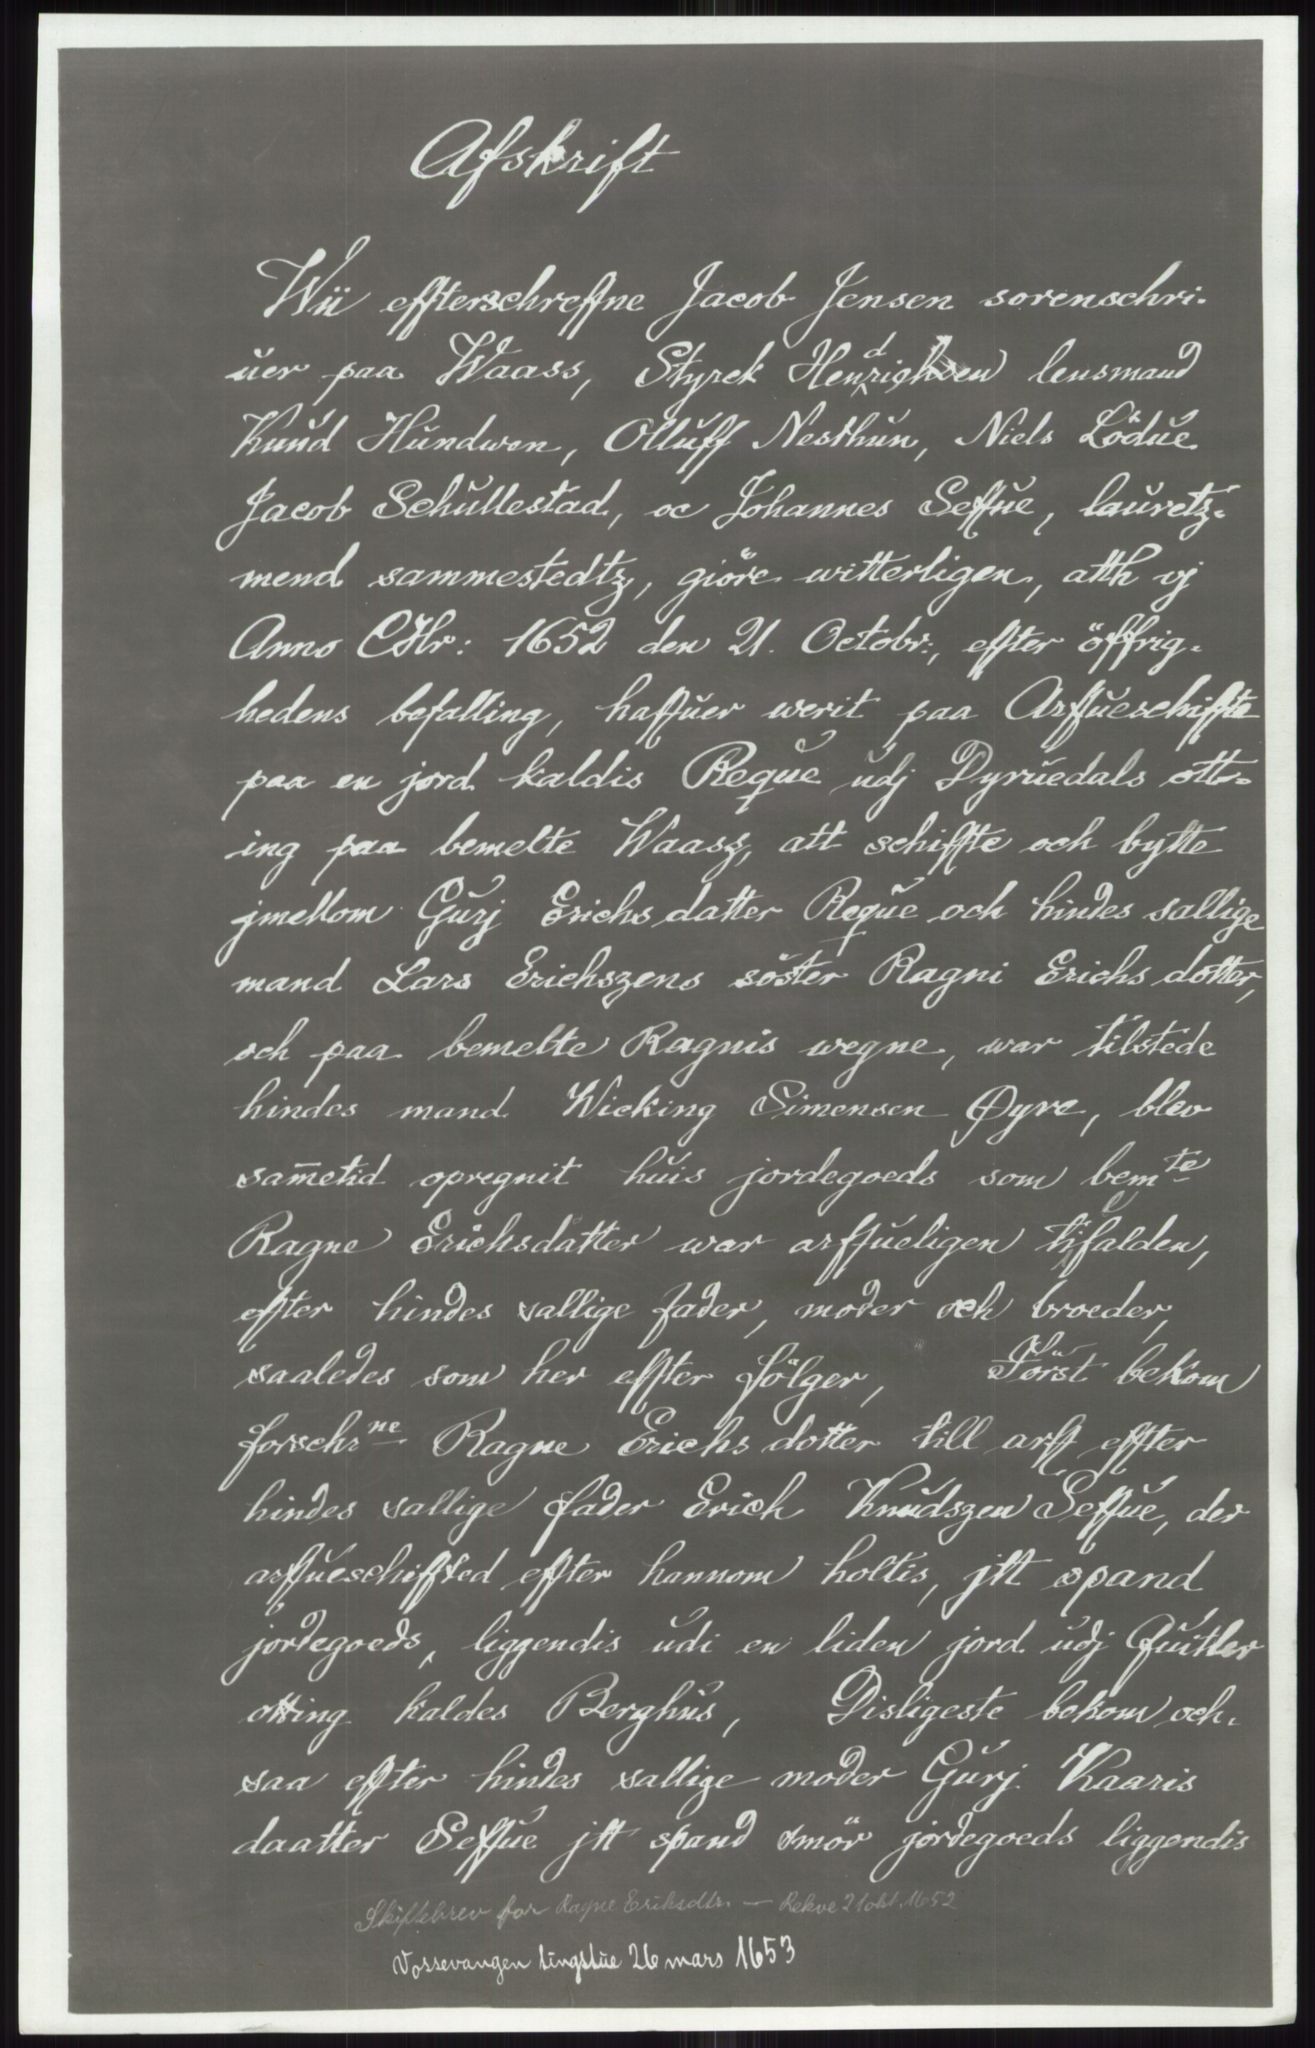 Afskrift
Wii effterschreffne Jacob Jensen sorenschri-
uer paa Waass, Styrck Hendrichsen lensmand
Knud Hundwen, Olluff Nesthun, Niels Lödue
Jacob Schullestad, oc Johannes Seffue, lauretz-
mend sammestedtz, giöre witterligen, atth vj
Anno CHr: 1652 den 21. Octobr:, effter öffrig-
hedens befalling, haffuer werit paa Arffueschiffte
paa en jord kaldis Reque udj Dyruedals ott-
ing paa bemelte Waasz, att schiffte och bytte
jmellom Gurj Erichs datter Reque och hindes sallige
mand Lars Erichszens söster Ragni Erichs dotter,
och paa bemelte Ragnis wegne, war tilstede
hindes mand Wicking Simensen Øyre, blev
sam̄etid opregnit huis jordegoeds som bem te
Ragne Erichsdatter war arffueligen tilfalden,
effter hindes sallige fader, moder och broeder,
saaledes som her effter fölger, Först bekom
forschr ne Ragne Erichs dotter till arff effter
hindes sallige fader Erich Knudszen Seffue, der
arffueschiffted effter hannom holtis, jtt spand
jordegoeds, liggendis udi en liden jord udj Quitler
otting kaldes Berghus, Disligeste bekom och-
saa effter hindes sallige moder Gurj Kaaris
daatter Seffue jtt spand smör jordegoeds liggendis
Skiftebrev for Ragne Eriksdtr. — Rekve 21 okt. 1652
Vossevangen tingstue 26 mars 1653